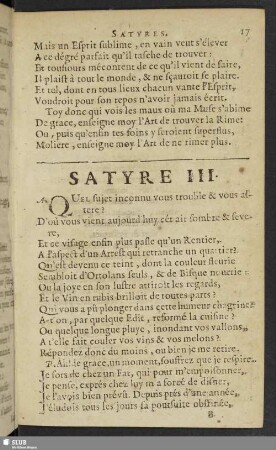 SATYRES. 17
Mais un Esprit sublime, en vain veut s'élever
A ce dégré parfait qu'il tasche de trouver:
Et tousjours mécontent de ce qu'il vient de faire,
Il plaist à tout le monde, & ne sçauroit se plaire.
Et tel, dont en tous lieux chacun vante l'Esprit,
Voudroit pour son repos n'avoir jamais écrit.
Toy donc qui vois les maux où ma Muse s'abime
De grace, enseigne moy l'Art de trouver la Rime:
Ou, puis qu'enfin tes soins y seroient superflus,
Moliere, enseigne moy l'Art de ne rimer plus.
SATYRE III.
A. QUEL sujet inconnu vous trouble & vous altere?
D'où vous vient aujourd'huy cét air sombre & severe,
Et ce visage enfin plus pasle qu'un Rentier,
A l'aspect d'un Arrest qui retranche un quartier?
Qu'est devenu ce teint, dont la couleur fleurie
Sembloit d'Ortolans seuls, & de Bisque nourrie:
Ou la joye en son lustre attiroit les regards,
Et le Vin en rubis brilloit de toutes parts?
Qui vous a pû plonger dans cette humeur chagrine?
A-t'on, par quelque Edit, reformé la cuisine?
Ou quelque longue pluye, inondant vos vallons,
A t'elle fait couler vos vins & vos melons?
Répondez donc du moins, ou bien je me retire.
P. Ah! de grace, un moment, souffrez que je respire.
Je sors de chez un Fat, qui pour m'empoisonner,
Je pense, exprés chez luy m'a forcé de disner,
Je l'avois bien prévû. Depuis prés d'une année,
J'éludois tous les jours sa poursuite obstinée,
B
SLUB